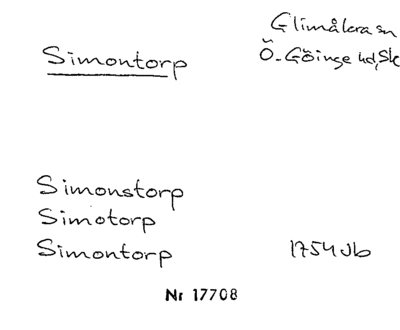 Glimåkra sn
Simontorp
Ö. Göinge hd, Sk
Simonstorp
Simotorp
Simontorp 1754 Jb
Nr 17708